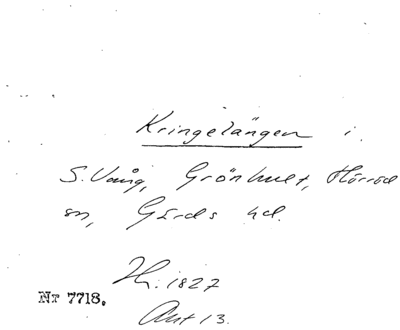 Kringelängen i
S. Vång, Grönhult, Hörröd
sn, Gärds hd.
H: 1827
Nr 7718.
Akt 13.